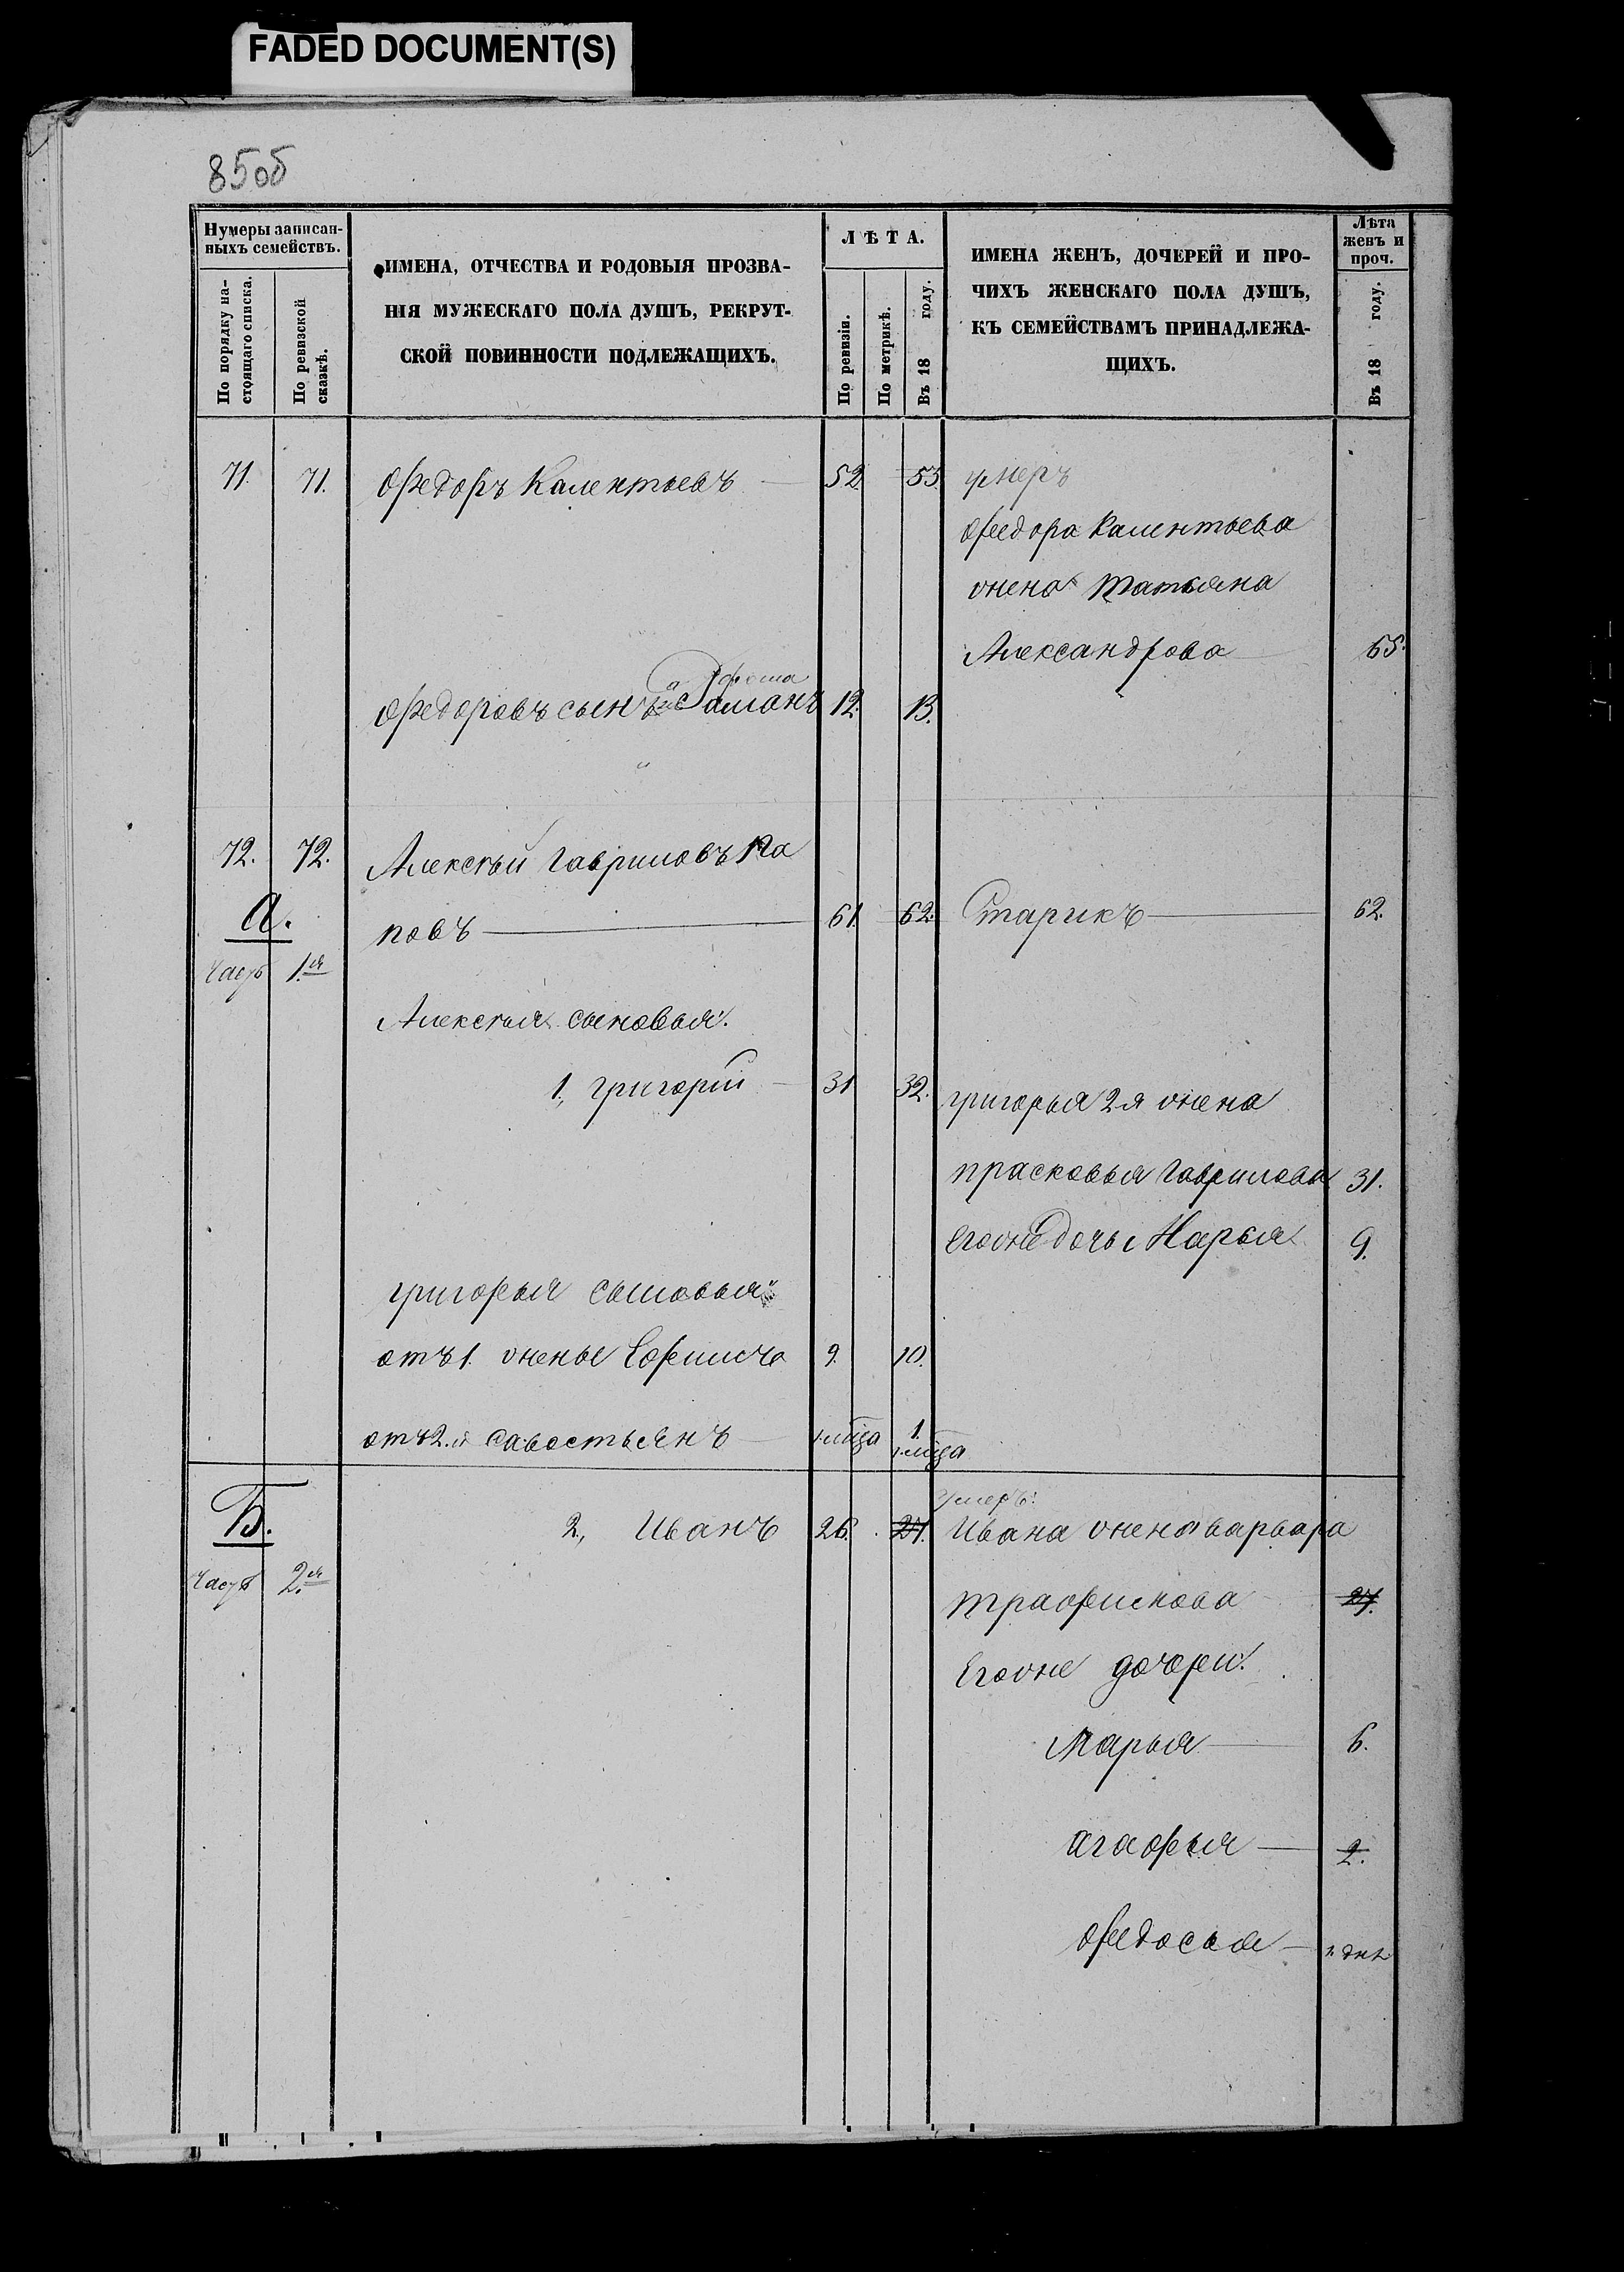 FADED DOCUMENT(S)
85об
Нумеры записан-
ныхъ семействъ.
По порядку на-
стоящаго списка.
По ревизской
сказкѣ.
ИМЕНА, ОТЧЕСТВА И РОДОВЫЯ ПРОЗВА-
НІЯ МУЖЕСКАГО ПОЛА ДУШЪ, РЕКРУТ-
СКОЙ ПОВИННОСТИ ПОДЛЕЖАЩИХЪ.
ЛѢТА.
По ревизіи.
По метрикѣ.
Въ 18 году.
ИМЕНА ЖЕНЪ, ДОЧЕРЕЙ И ПРО-
ЧИХЪ ЖЕНСКАГО ПОЛА ДУШЪ,
КЪ СЕМЕЙСТВАМЪ ПРИНАДЛЕЖА-
ЩИХЪ.
Лѣта
женъ и
проч.
Въ 18 году.
71. 71. Федоръ Калентьевъ 52. 53. умеръ
Федора Калентьева
жена Татьяна
Александрова 65.
Федоровъ сынъ Раманъ 12. 13.
72. 72. Алексѣй Гавриловъ Па
А. повъ 61. 62. Старикъ 62.
Часть 1.я
Алексѣя сыновья.
1., Григорій 31 32. Григорья 2я жена
Прасковья Гаврилова 31.
Егоже дочь Марья 9.
Григорья сыновья
отъ 1. жены 9. 10.
отъ 2.й Савостьянъ 1.
Б. 2., Иванъ 26. 27. Умеръ.
Ивана жена Варвара
Часть 2.я
Трафискова 27.
Егоже дочери.
Марья 6.
Агафья 2.
Федосья